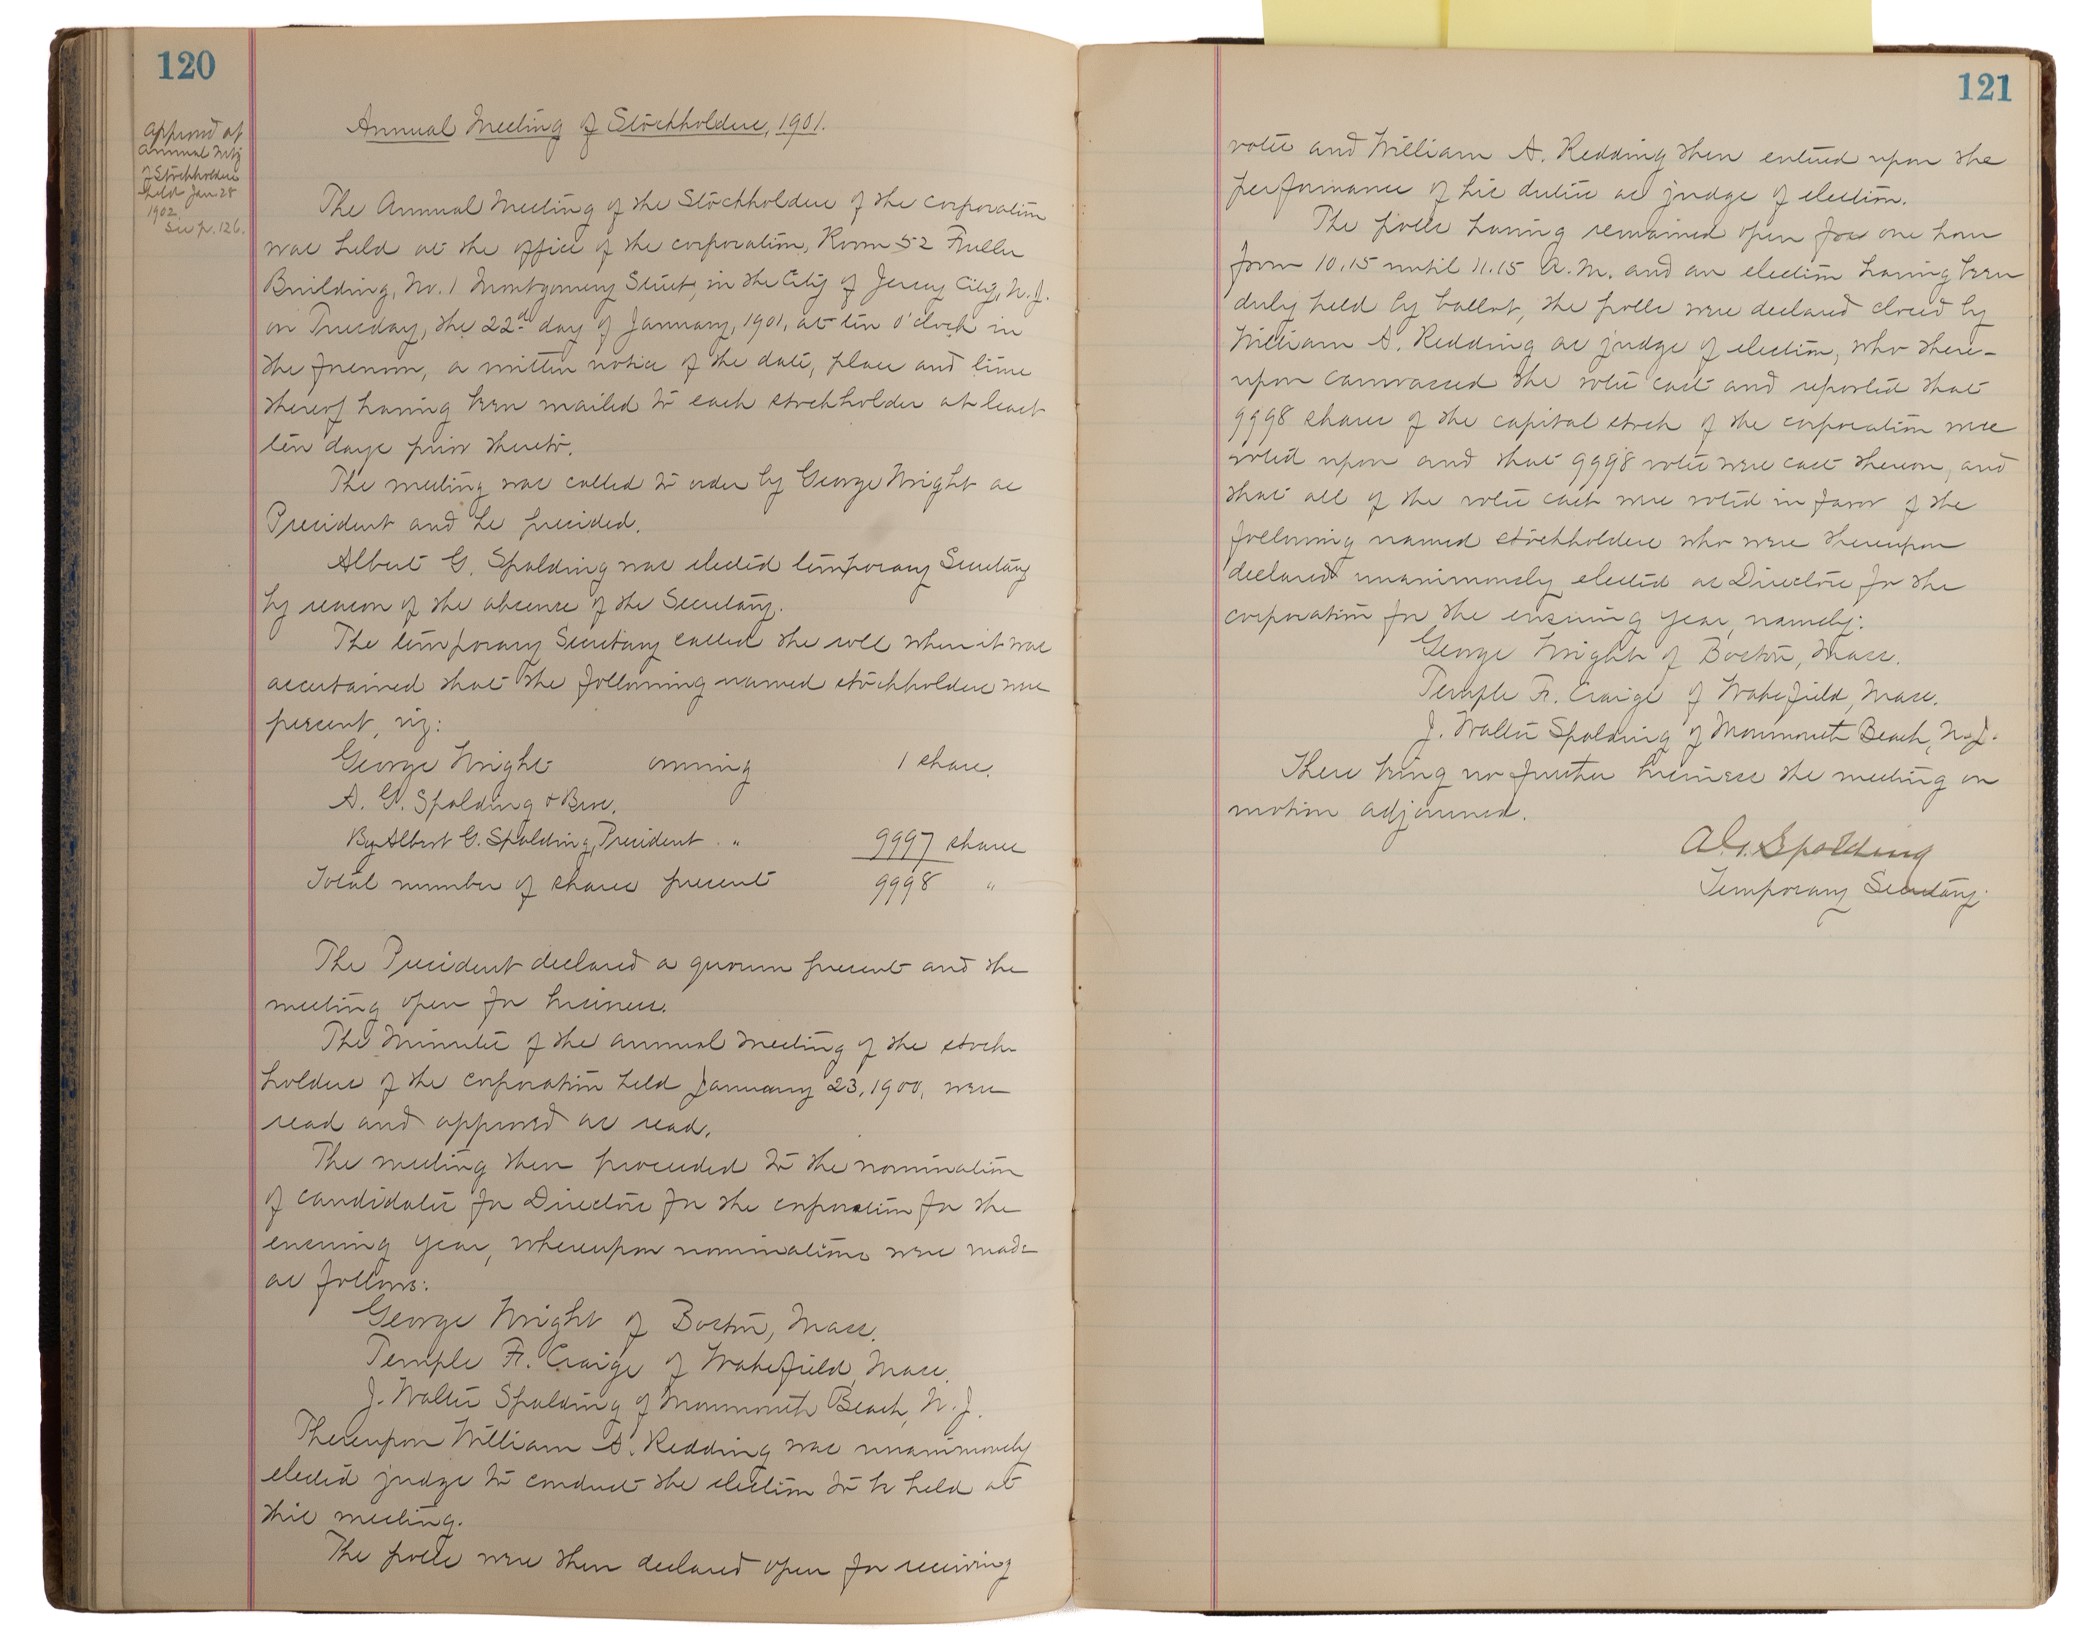 120
Approved at
Annual Mtg
of Stockholders
held Jan 28
1902.
See p. 126.
Annual Meeting of Stockholders, 1901.
The Annual Meeting of the Stockholders of the corporation
was held at the office of the corporation, Room 52 Fuller
Building, No. 1 Montgomery Street, in the City of Jersey City, N.J.
on Tuesday, the 22d day of January, 1901, at ten o'clock in
the forenoon, a written notice of the date, place and time
thereof having been mailed to each stockholder at least
ten days prior thereto.
The meeting was called to order by George Wright as
President and he presided.
Albert G. Spalding was elected temporary Secretary
by reason of the absence of the Secretary.
The temporary Secretary called the roll when it was
ascertained that the following named stockholders were
present, viz:
George Wright owning 1 share.
A. G. Spalding & Bros.
By Albert G. Spalding, President " 9997 shares
Total number of shares present 9998 "
The President declared a quorum present and the
meeting open for business.
The Minutes of the annual meeting of the stock-
holders of the corporation held January 23, 1900, were
read and approved as read.
The meeting then proceeded to the nomination
of candidates for Directors for the corporation for the
ensuing year, whereupon nominations were made
as follows:
George Wright of Boston, Mass.
Temple R. Craige of Wakefield, Mass.
J. Walter Spalding of Monmouth Beach, N.J.
Thereupon William A. Redding was unanimously
elected judge to conduct the election to be held at
this meeting.
The polls were then declared open for receiving
121
votes and William A. Redding then entered upon the
performance of his duties as judge of election.
The polls having remained open for one hour
from 10.15 until 11.15 A.M. and an election having been
duly held by ballot, the polls were declared closed by
William A. Redding as judge of election, who there-
upon canvassed the votes cast and reported that
9998 shares of the capital stock of the corporation were
voted upon and that 9998 votes were cast thereon, and
that all of the votes cast were voted in favor of the
following named stockholders who were thereupon
declared unanimously elected as Directors for the
corporation for the ensuing year, namely:
George Wright of Boston, Mass.
Temple R. Craige of Wakefield, Mass.
J. Walter Spalding of Monmouth Beach, N.J.
There being no further business the meeting on
motion adjourned.
A. G. Spalding
Temporary Secretary.